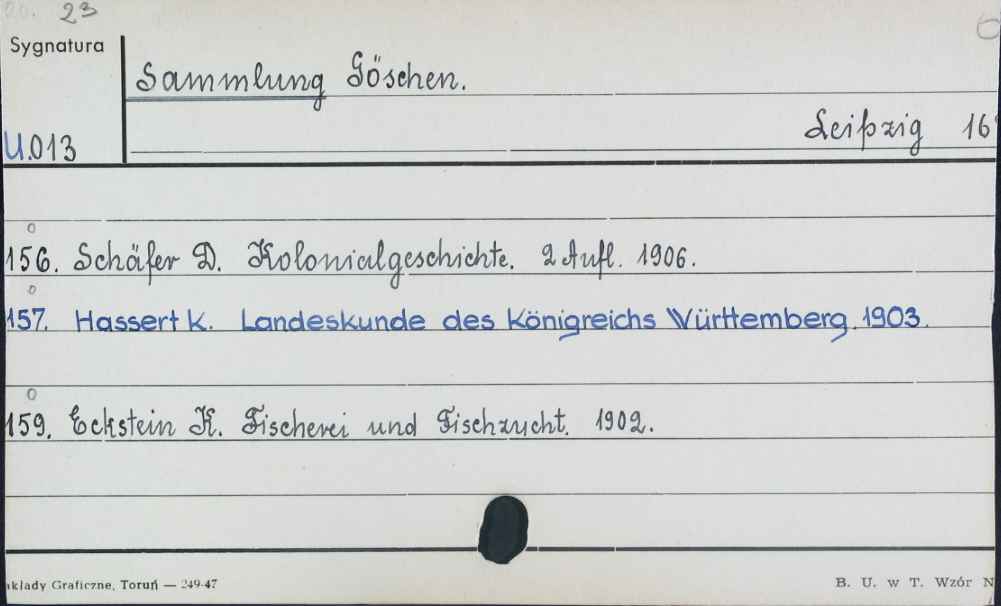 23
Sygnatura
Sammlung Göschen.
Leipzig 16
U.013
156. Schäfer D. Kolonialgeschichte. 2 Aufl. 1906.
157. Hassert K. Landeskunde des Königreichs Württemberg. 1903.
159. Eckstein K. Fischerei und Fischzucht. 1902.
akłady Graficzne, Toruń — 249-47
B. U. w T. Wzór N